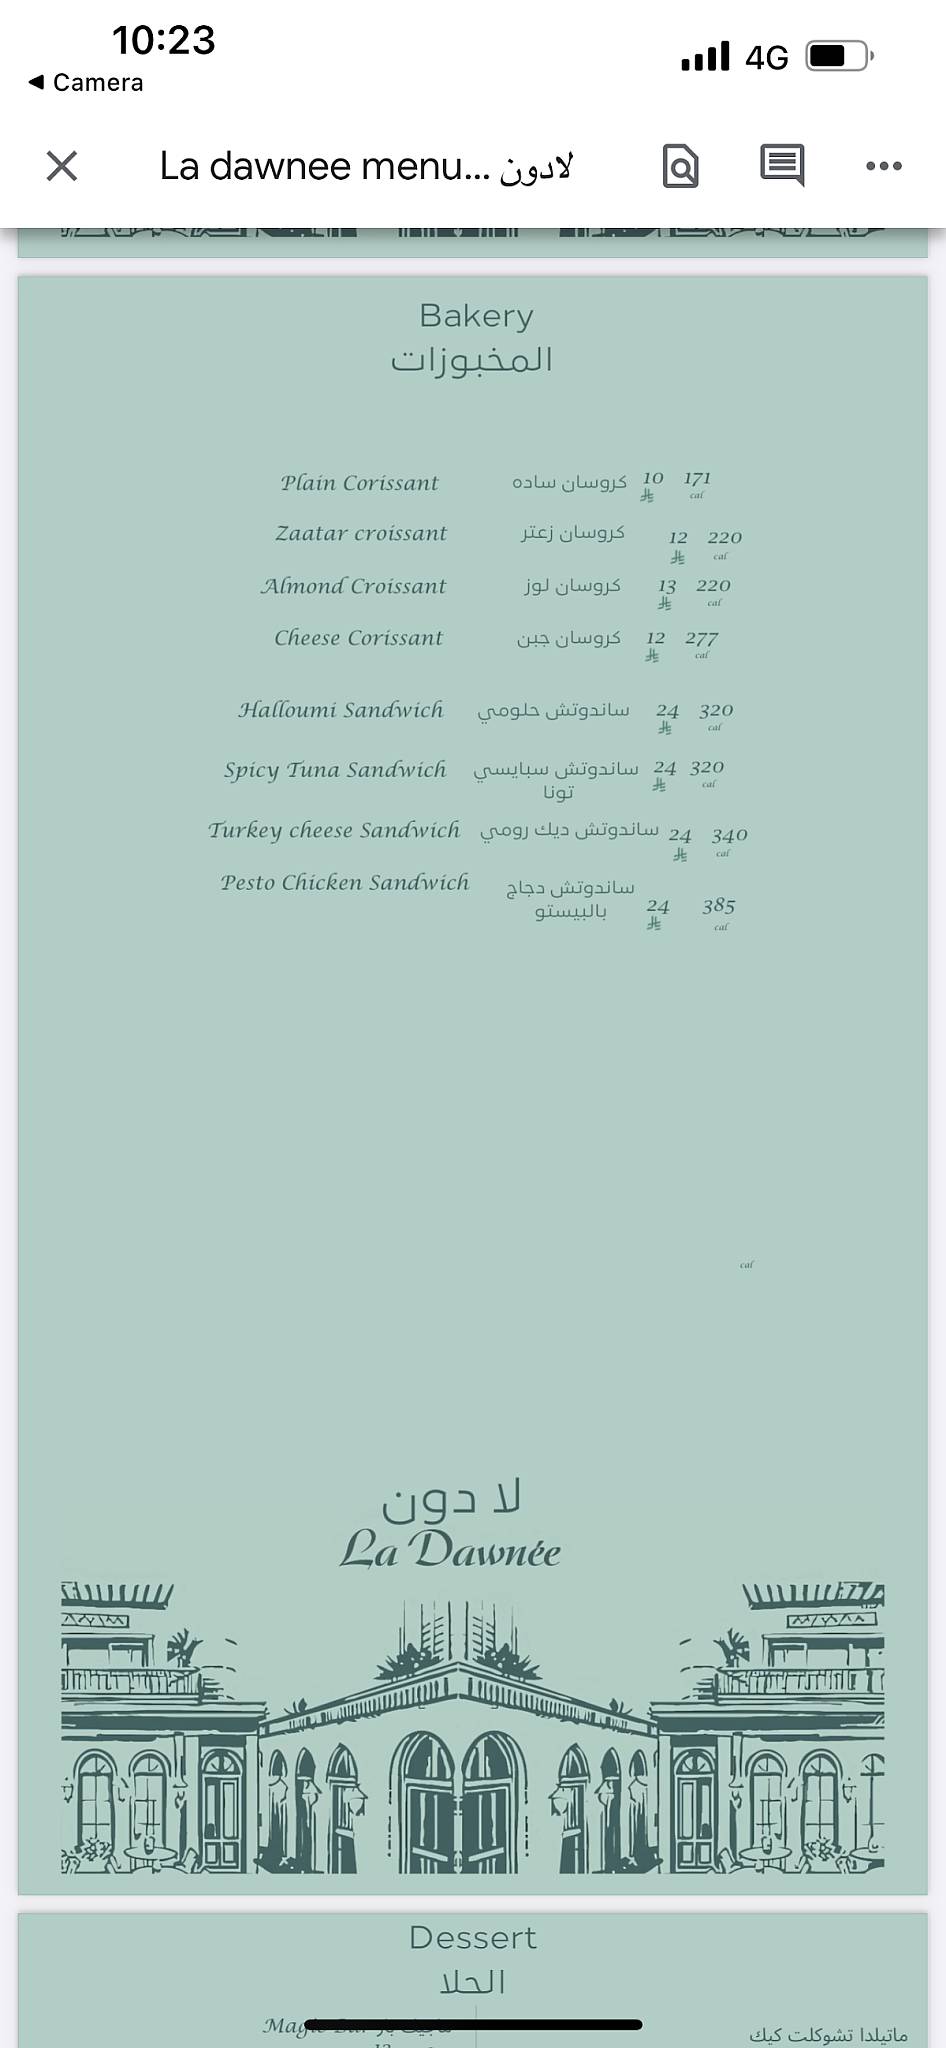 10:23
4G
◀ Camera
La dawnee menu... لادون
Bakery
المخبوزات
Plain Corissant كروسان ساده 10 171
cal
Zaatar croissant كروسان زعتر 12 220
cal
Almond Croissant كروسان لوز 13 220
cal
Cheese Corissant كروسان جبن 12 277
cal
Halloumi Sandwich ساندوتش حلومي 24 320
cal
Spicy Tuna Sandwich ساندوتش سبايسي 24 320
تونا cal
Turkey cheese Sandwich ساندوتش ديك رومي 24 340
cal
Pesto Chicken Sandwich ساندوتش دجاج
بالبيستو 24 385
cal
cal
لا دون
La Dawnée
Dessert
الحلا
ماتيلدا تشوكلت كيك